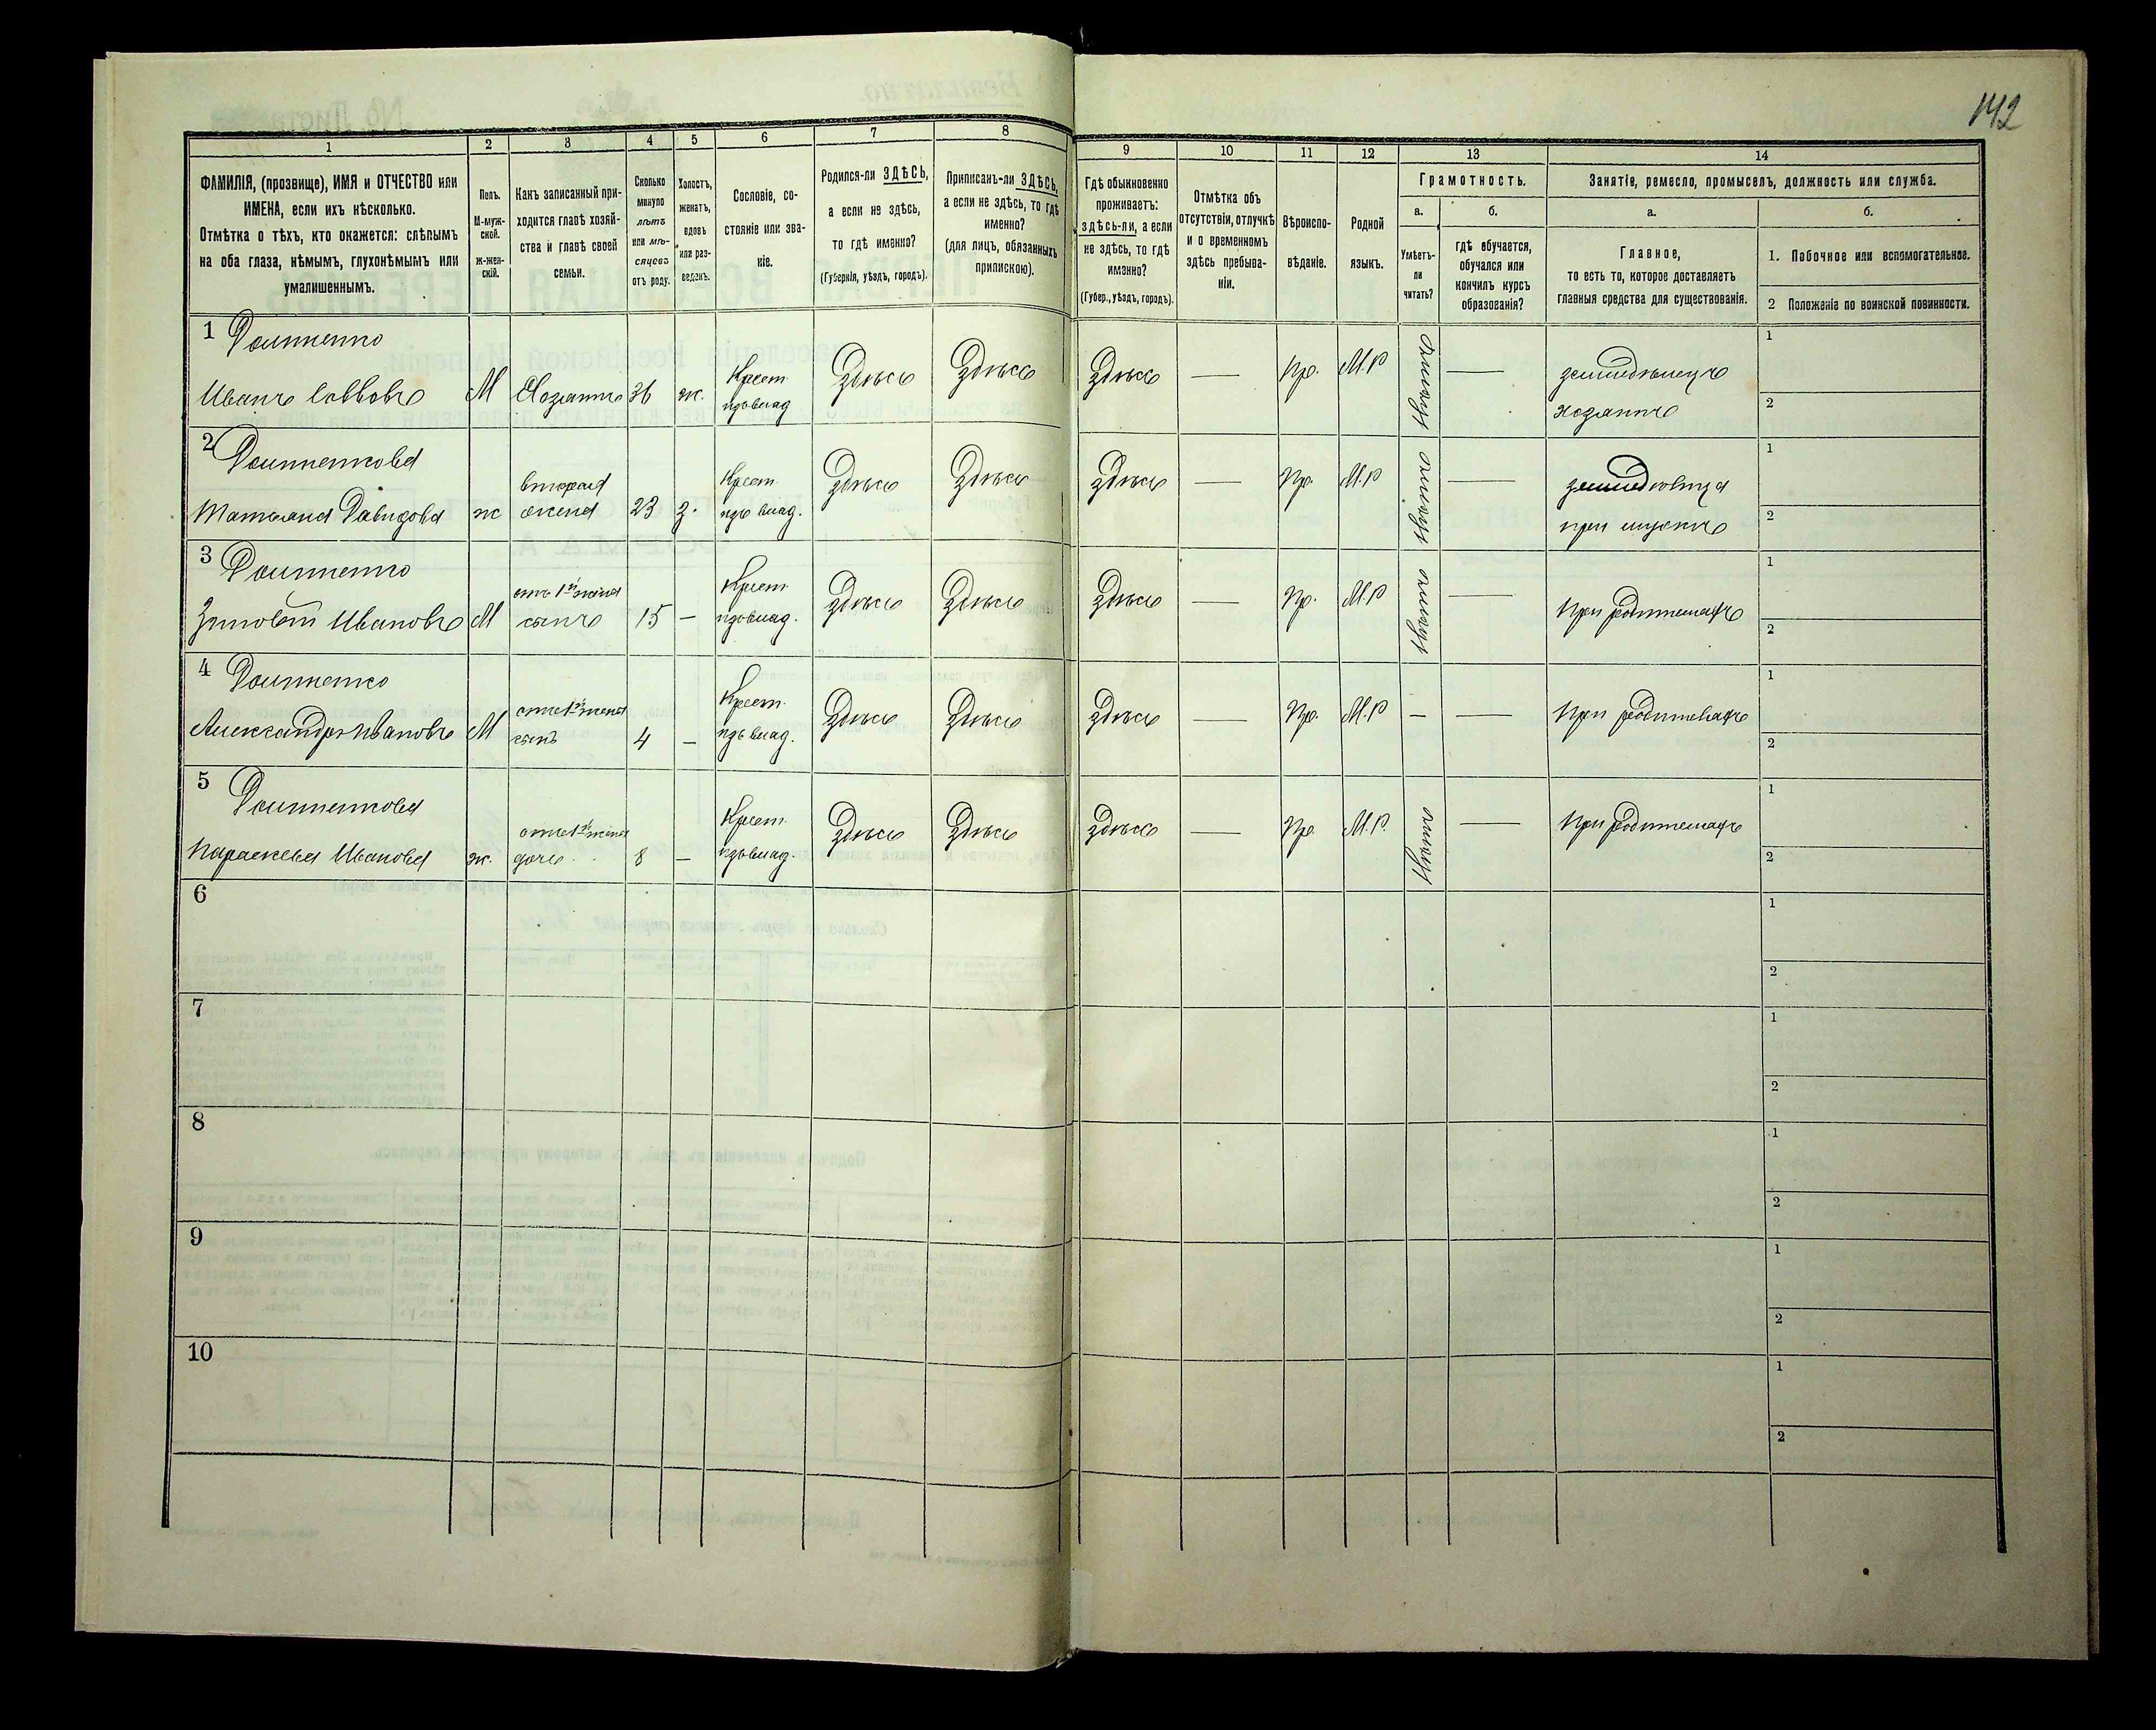 142
1
2
3
4
5
6
7
8
9
10
11
12
13
14
ФАМИЛІЯ, (прозвище), ИМЯ и ОТЧЕСТВО или
ИМЕНА, если ихъ нѣсколько.
Отмѣтка о тѣхъ, кто окажется: слѣпымъ
на оба глаза, нѣмымъ, глухонѣмымъ или
умалишеннымъ.
Полъ.
М-муж-
ской.
ж-жен-
скій.
Какъ записанный при-
ходится главѣ хозяй-
ства и главѣ своей
семьи.
Сколько
минуло
лѣтъ
или мѣ-
сяцевъ
отъ роду.
Холостъ,
женатъ,
вдовъ
или раз-
веденъ.
Сословіе, со-
стояніе или зва-
ніе.
Родился-ли ЗДѢСЬ,
а если не здѣсь,
то гдѣ именно?
(Губернія, уѣздъ, городъ).
Приписанъ-ли ЗДѢСЬ,
а если не здѣсь, то гдѣ
именно?
(для лицъ, обязанныхъ
припискою).
Гдѣ обыкновенно
проживаетъ:
здѣсь-ли, а если
не здѣсь, то гдѣ
именно?
(Губер., уѣздъ, городъ).
Отмѣтка объ
отсутствіи, отлучкѣ
и о временномъ
здѣсь пребыва-
ніи.
Вѣроиспо-
вѣданіе.
Родной
языкъ.
Грамотность.
а.
Умѣетъ-
ли
читать?
б.
гдѣ обучается,
обучался или
кончилъ курсъ
образованія?
Занятіе, ремесло, промыселъ, должность или служба.
а.
Главное,
то есть то, которое доставляетъ
главныя средства для существованія.
б.
1. Побочное или вспомогательное.
2 Положеніе по воинской повинности.
1
Иванъ Саввовъ
М
Хозяинъ
36
ж.
Крест.
изъ влад.
Здѣсь
Здѣсь
Здѣсь
—
Пр.
М.Р
—
земледѣлецъ
хозяинъ
1
2
2
Татьяна Давидова
ж
вторая
жена
23
з.
Крест.
изъ влад.
Здѣсь
Здѣсь
Здѣсь
—
Пр.
М.Р
—
при мужѣ
1
2
3
Ивановъ
М
отъ 1й жены
сынъ
15
—
Крест.
изъ влад.
Здѣсь
Здѣсь
Здѣсь
—
Пр.
М.Р
—
При родителяхъ
1
2
4
Александръ Ивановъ
М
отъ 1й жены
сынъ
4
—
Крест.
изъ влад.
Здѣсь
Здѣсь
Здѣсь
—
Пр.
М.Р
—
—
При родителяхъ
1
2
5
Параскева Иванова
ж.
отъ 1й жены
дочь
8
—
Крест.
изъ влад.
Здѣсь
Здѣсь
Здѣсь
—
Пр.
М.Р.
—
При родителяхъ
1
2
6
1
2
7
1
2
8
1
2
9
1
2
10
1
2